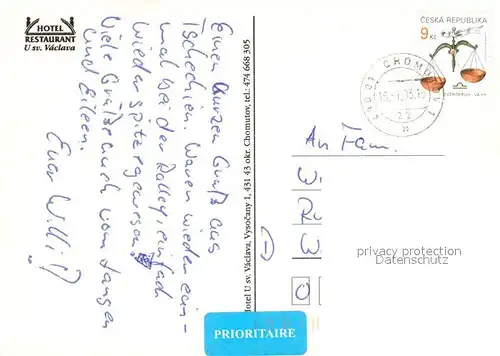 HOTEL
RESTAURANT
U sv. Václava
Einen kurzen Gruß aus
Tschechien. Waren wieder ein-
mal bei der Ralley, einfach
wieder spitze gewesen!
Viele Grüße auch vom langen
und Eileen.
Euer Willi
Hotel U sv. Václava, Vysočany 1, 431 43 okr. Chomutov, tel.: 474 668 305
ČESKÁ REPUBLIKA
9 Kč
CHOMUTOV 1
An Fam.
W
R
W
privacy protection
Datenschutz
PRIORITAIRE